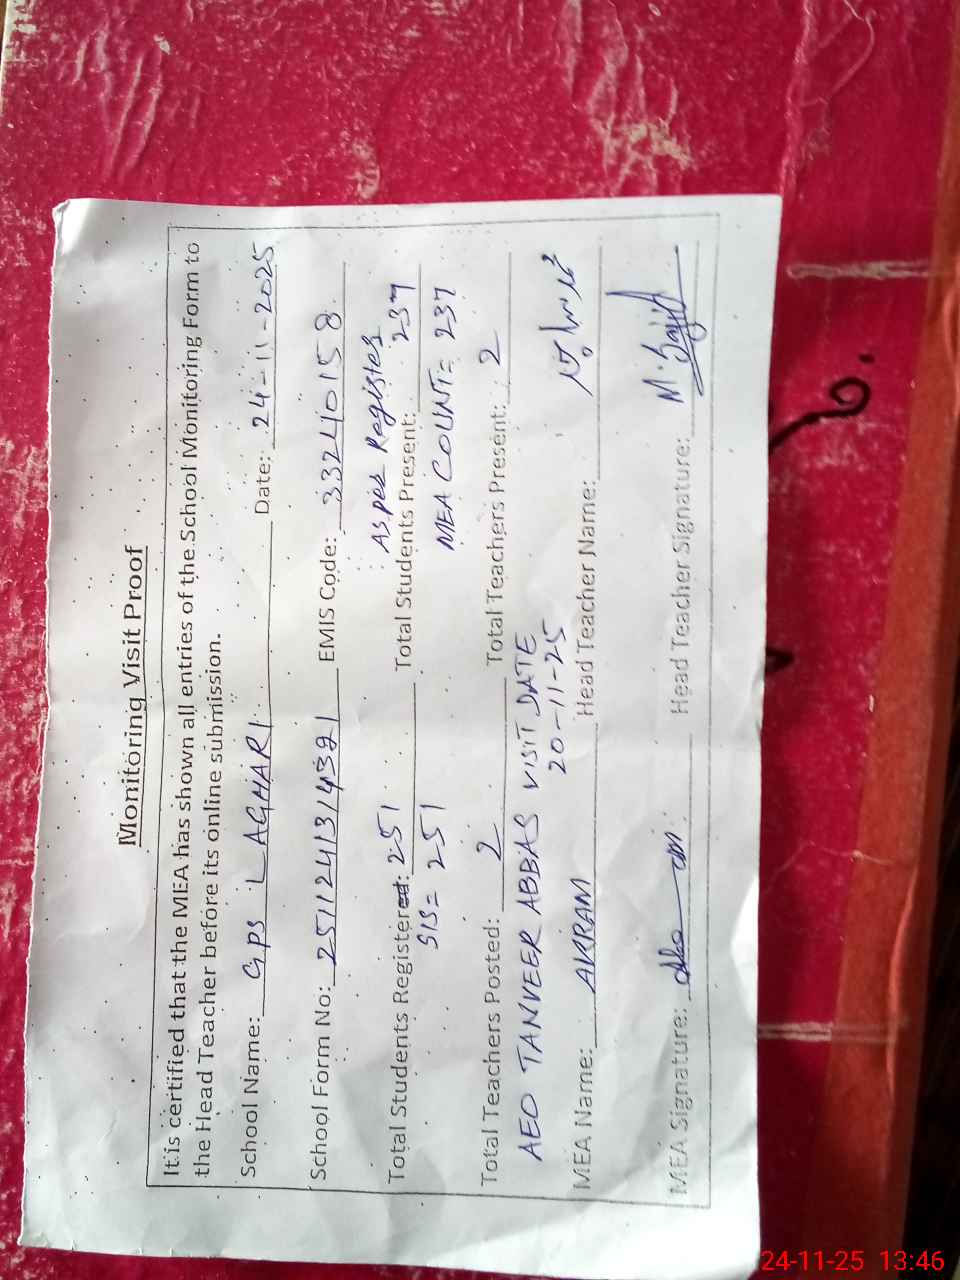 Monitoring Visit Proof
It is certified that the MEA has shown all entries of the School Monitoring Form to
the Head Teacher before its online submission.
School Name: GPS LAGHARI Date: 24-11-2025
School Form No: EMIS Code: 33210158
As per Register
Total Students Registered: 251 Total Students Present: 237
SIS= 251 MEA COUNT= 237
Total Teachers Posted: 2 Total Teachers Present: 2
AEO TANVEER ABBAS VISIT DATE
20-11-25
MEA Name: AKRAM Head Teacher Name:
MEA Signature: Head Teacher Signature: M. Sajid
24-11-25 13:46